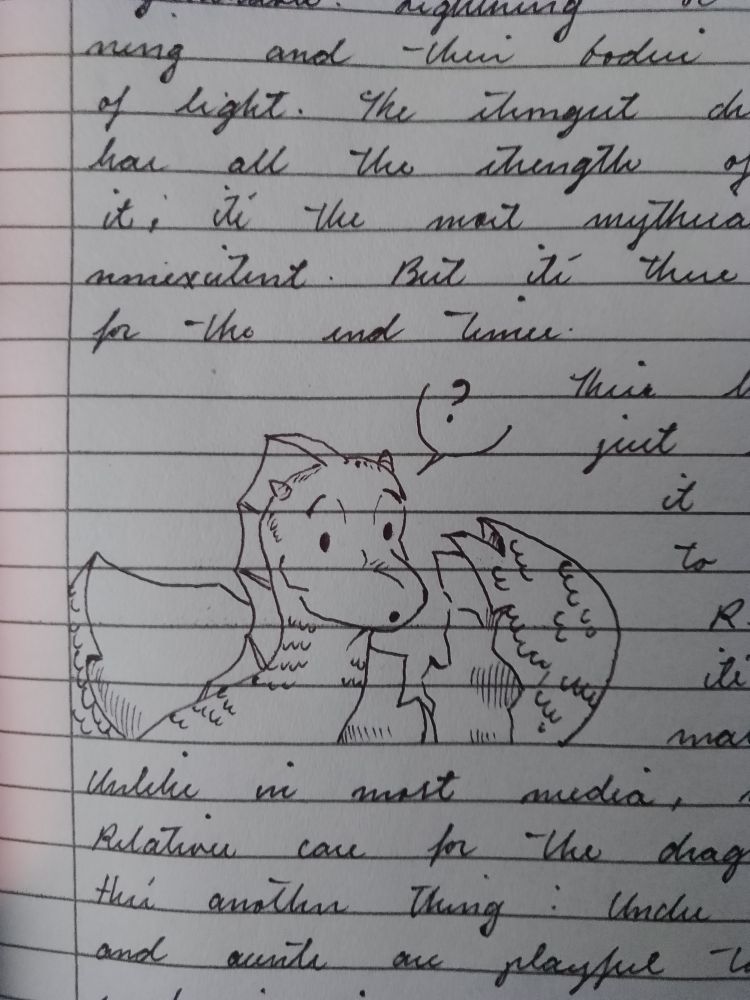 Lightning
ning and their bodies
of light. The strongest
has all the strength of
it; its the most
nonexistent. But its there
for the end times.
?
This
just
it
to
R.
its
Unlike in most media,
Relatives care for the
this another thing: Uncle
and aunts are playful